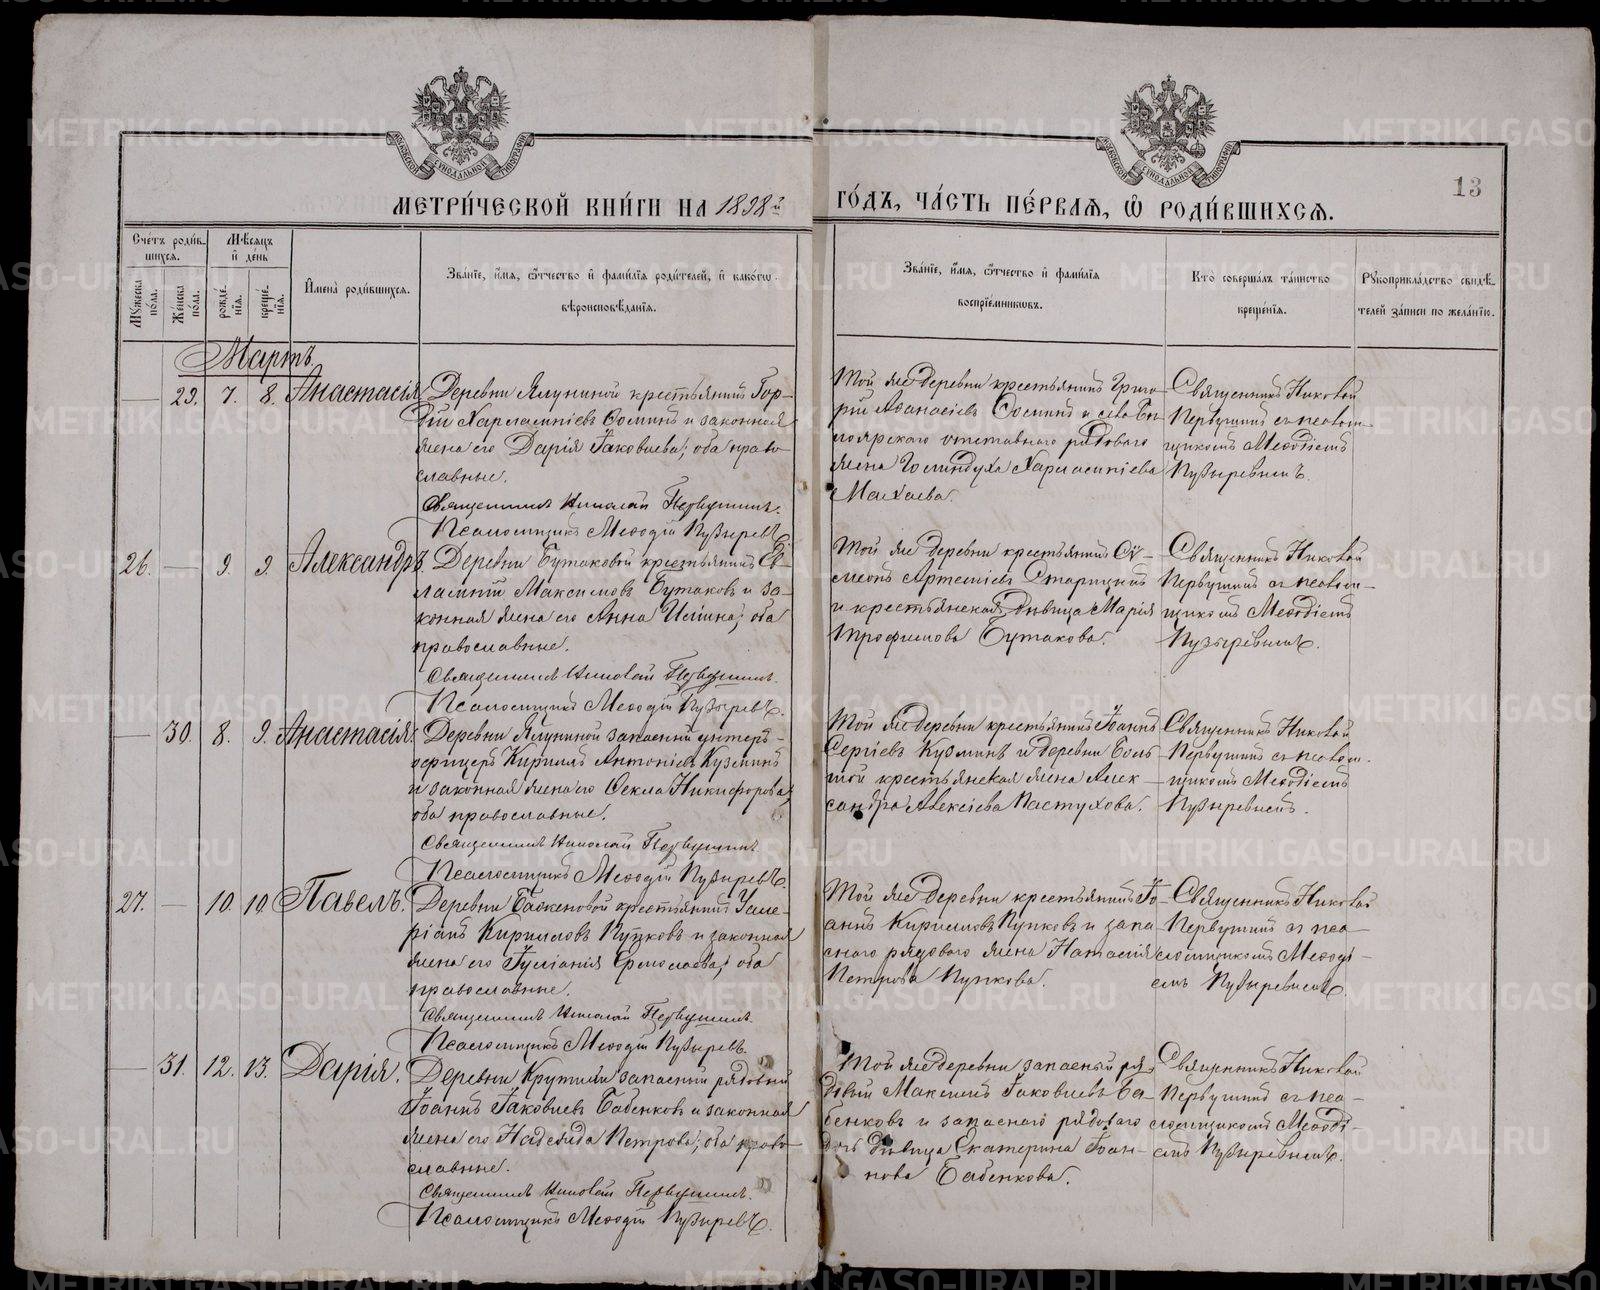 13
МЕТРИ́ЧЕСКОЙ КНИ́ГИ НА 1898й ГО́ДЪ, ЧА́СТЬ ПЕ́РВАѦ, Ѡ РОДИ́ВШИХСѦ.
Сче́тъ роди́в-
шихсѧ.
Мꙋ́жеска по́ла.
Же́нска по́ла.
Мѣ́сяцъ и де́нь
рожде́-
нїѧ.
креще́-
нїѧ.
Имена̀ роди́вшихсѧ.
Зва́нїе, и́мѧ, ѻ́тчество и фами́лїѧ роди́телей, и како́гѡ
вѣроисповѣ́данїѧ.
Зва́нїе, и́мѧ, ѻ́тчество и фами́лїѧ
воспрїе́мникѡвъ.
Кто̀ соверша́лъ та́инство
креще́нїѧ.
Рꙋкоприкла́дство свидѣ́-
телей за́писи по жела́нїю.
Мартъ
— 29. 7. 8. Анастасія
Деревни Ялуниной крестьянинъ Гор-
дій Харлампіевъ Ѳоминъ и законная
жена его Дарія Іаковлева, оба право-
славные.
Священникъ Николай Первушинъ.
Псаломщикъ Меѳодій Пузыревъ.
Той же деревни крестьянинъ Григо-
рій Аѳанасіевъ Ѳоминъ и
отставнаго рядоваго
жена Голиндуха Харлампіева
Священникъ Николай
Первушинъ съ псалом-
щикомъ Меѳодіемъ
Пузыревымъ.
26. — 9. 9. Александръ.
Деревни Бутаковой крестьянинъ Ев-
лампій Максимовъ Бутаковъ и за-
конная жена его Анна, оба
православные.
Священникъ Николай Первушинъ.
Псаломщикъ Меѳодій Пузыревъ.
Той же деревни крестьянинъ Сѵ-
меонъ Артеміевъ Старицынъ
и крестьянская дѣвица Марія
Трофимова Бутакова.
Священникъ Николай
Первушинъ съ псалом-
щикомъ Меѳодіемъ
Пузыревымъ.
— 30. 8. 9. Анастасія.
Деревни Ялуниной запасный унтеръ-
офицеръ Кириллъ Антоніевъ Кузминъ
и законная жена его Ѳекла Никифорова,
оба православные.
Священникъ Николай Первушинъ.
Псаломщикъ Меѳодій Пузыревъ.
Той же деревни крестьянинъ Іоаннъ
Сергіевъ Кузминъ и деревни Боль-
шой крестьянская жена Алек-
сандра Алексіева Пастухова.
Священникъ Николай
Первушинъ съ псалом-
щикомъ Меѳодіемъ
Пузыревымъ.
27. — 10. 10. Павелъ.
Деревни Баженовой крестьянинъ Уале-
ріанъ Кирилловъ Пупковъ и законная
жена его Іуліанія Ермолаева, оба
православные.
Священникъ Николай Первушинъ.
Псаломщикъ Меѳодій Пузыревъ.
Той же деревни крестьянинъ Іо-
аннъ Кирилловъ Пупковъ и запа-
снаго рядоваго жена Наталія
Петрова Пупкова.
Священникъ Николай
Первушинъ съ пса-
ломщикомъ Меѳоді-
емъ Пузыревымъ.
— 31. 12. 13. Дарія.
Деревни Крутихи запасный рядовый
Іоаннъ Іаковлевъ Бабенковъ и законная
жена его Надежда Петрова, оба право-
славные.
Священникъ Николай Первушинъ.
Псаломщикъ Меѳодій Пузыревъ.
Той же деревни запасный ря-
довый Максимъ Іаковлевъ Ба-
бенковъ и запаснаго рядоваго
дочь дѣвица Екатерина Іоан-
нова Бабенкова.
Священникъ Николай
Первушинъ съ пса-
ломщикомъ Меѳоді-
емъ Пузыревымъ.